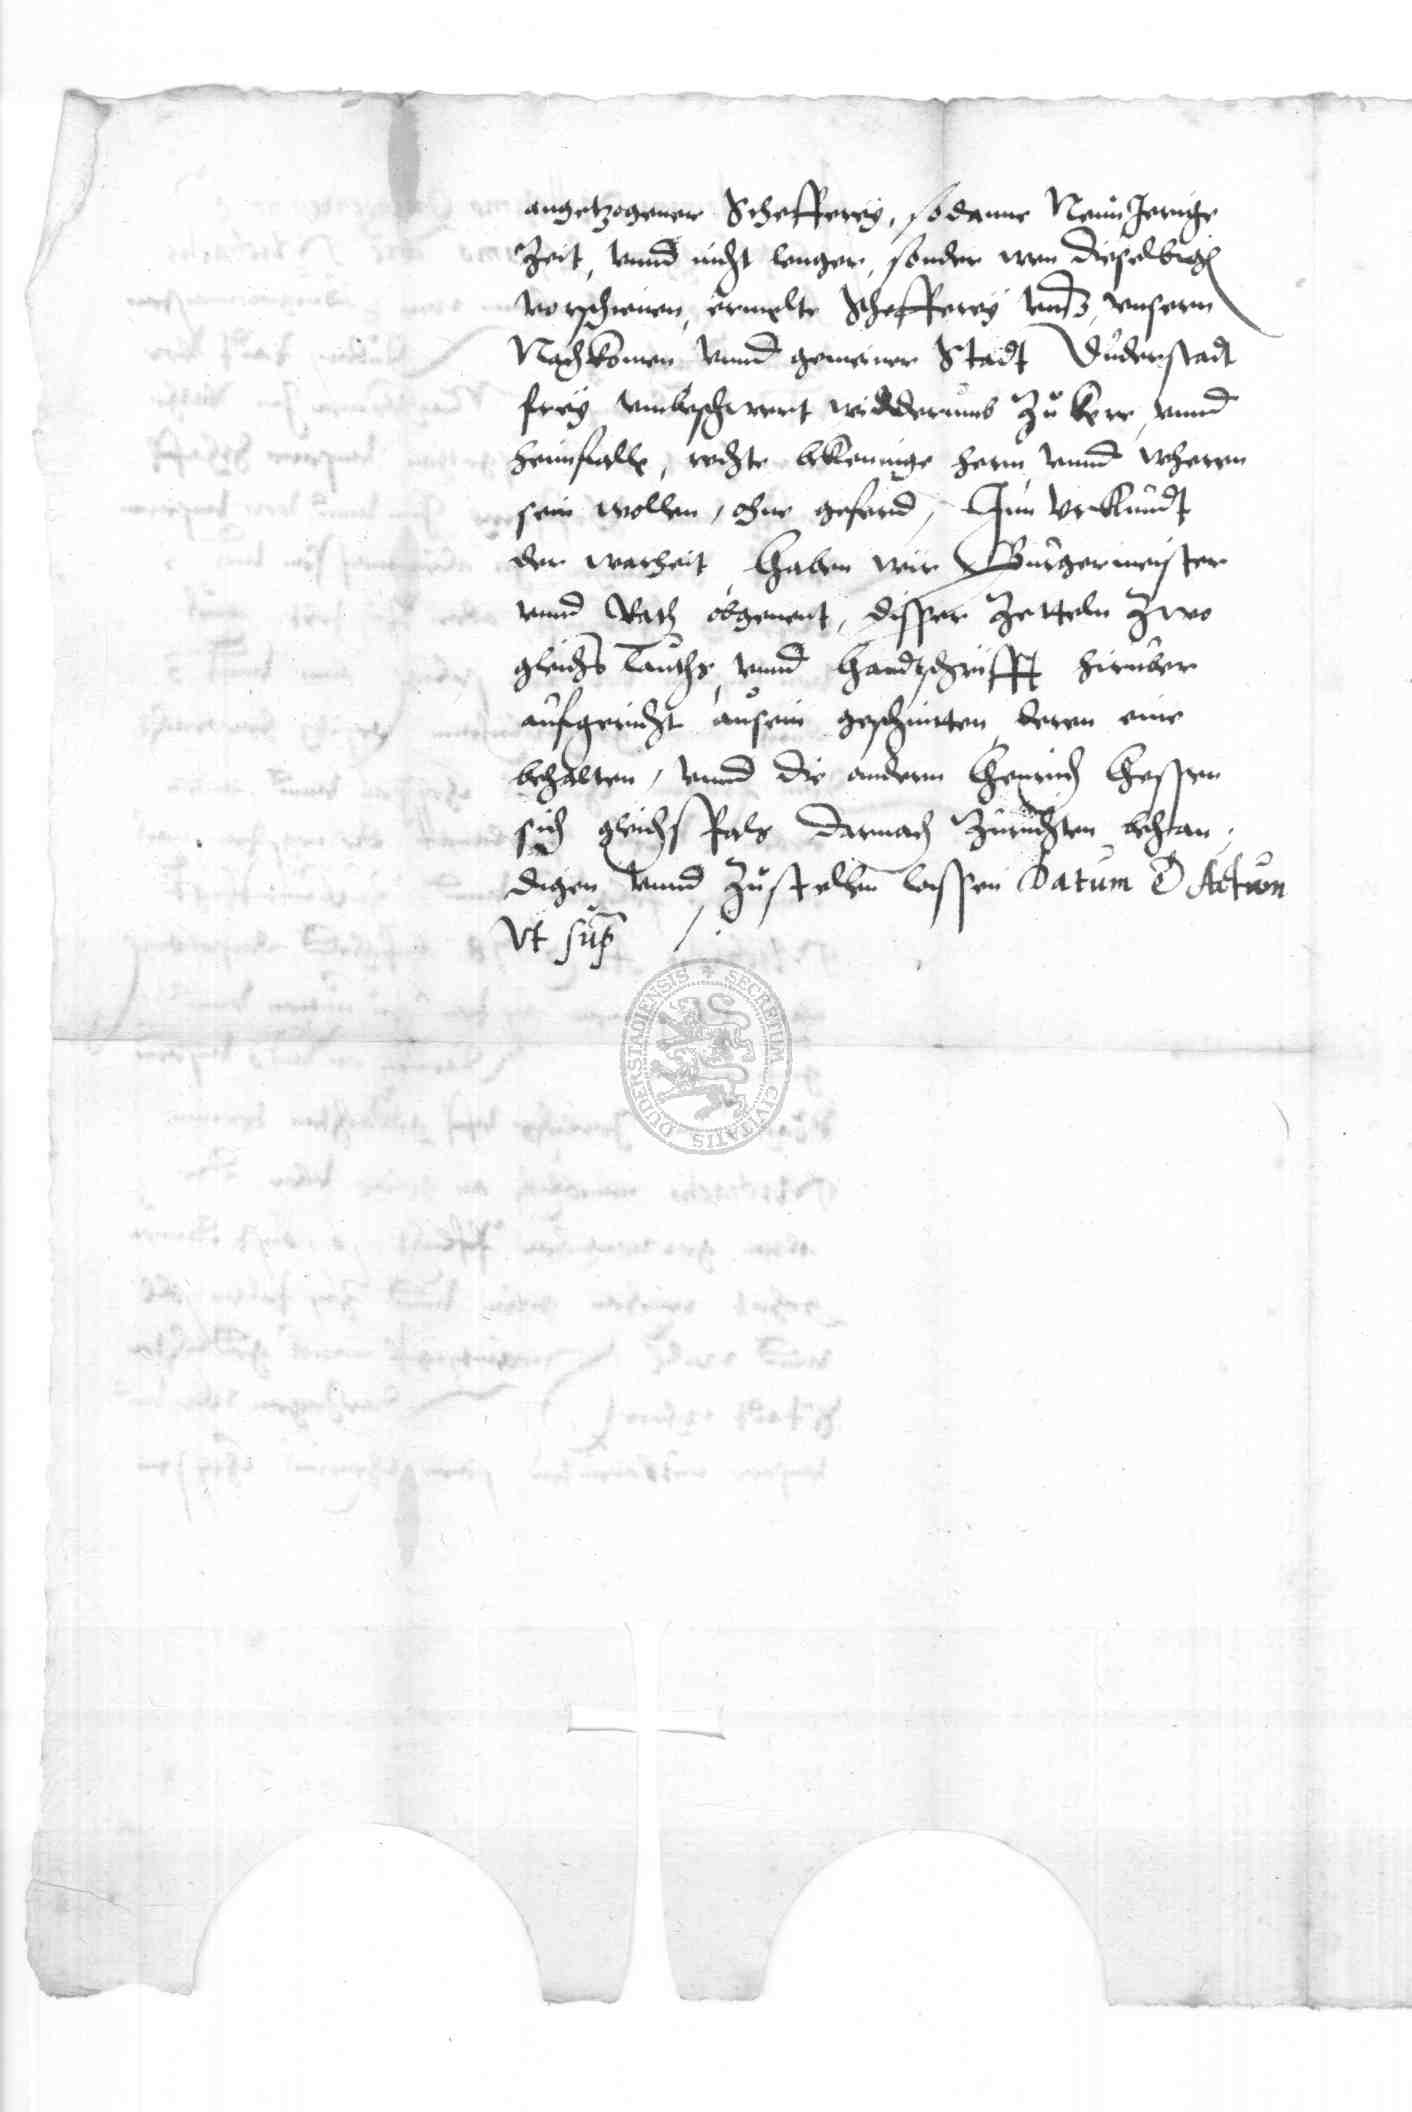 angetzogener Schefferey, sodanne Neun Jerige
Zeit, vnnd nicht lenger, sonder wen dieselbige
vorschienen, ermelte Schefferey vnß, vnsern
Nachkomen vnnd gemeiner Stadt Duderstadt
frey vnbeschwert widderumb zu kere, vnnd
heimfalle, rechte bekennige hern, vnnd wherrn
sein wollen, ohne geferd, Inn Vrkundt
der warheit, haben wir Burgermeister
vnnd Rath obgenent, disser Zetteln zwo
gleichs lauths, vnnd handtschrifft hiruber
aufgericht ausein geschnitten, deren eine
behalten, vnnd die andern Henrich Hessen
sich gleichsfals darnach zurichten behan,
digen vnnd zustellen lassen Datum & Actum
Vt sup
SECRETUM CIVITATIS DUDERSTADIENSIS